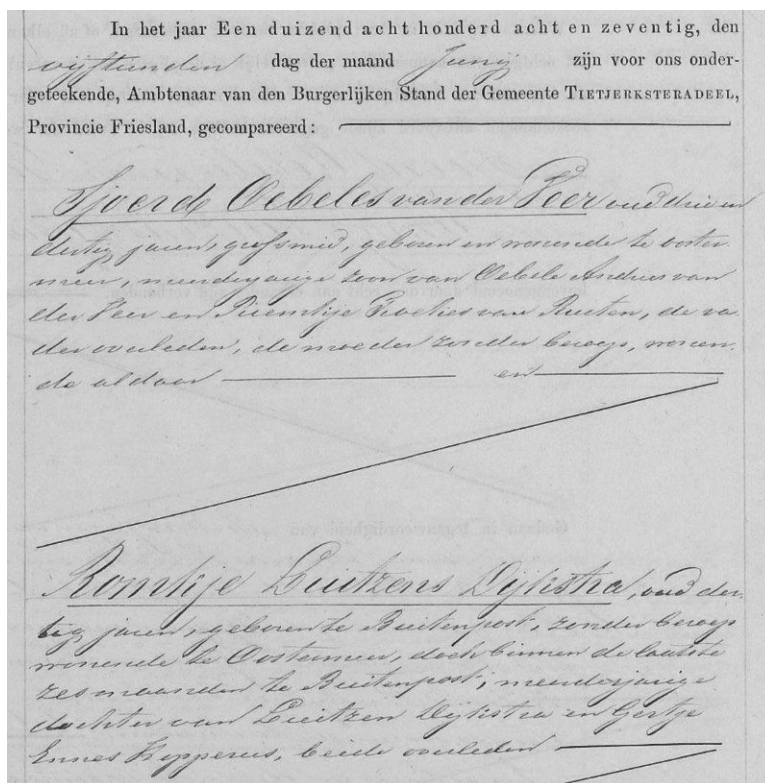 In het jaar Een duizend acht honderd acht en zeventig, den
vijftienden dag der maand Junij zijn voor ons onder-
geteekende, Ambtenaar van den Burgerlijken Stand der Gemeente TIETJERKSTERADEEL,
Provincie Friesland, gecompareerd:
Sjoerd Oebeles van der Veer, oud drie en
dertig jaren, grofsmid, geboren en wonende te Ooster-
meer, meerderjarige zoon van Oebele Andries van
der Veer en Riemkje van Ruiten, de va-
der overleden, de moeder zonder beroep, wonen-
de aldaar en
Romkje Luitzens Dijkstra, oud der-
tig jaren, geboren te Buitenpost, zonder beroep
wonende te Oostermeer, doch binnen de laatste
zes maanden te Buitenpost, meerderjarige
dochter van Luitzen Dijkstra en Gertje
Ennes Kopperus, beide overleden